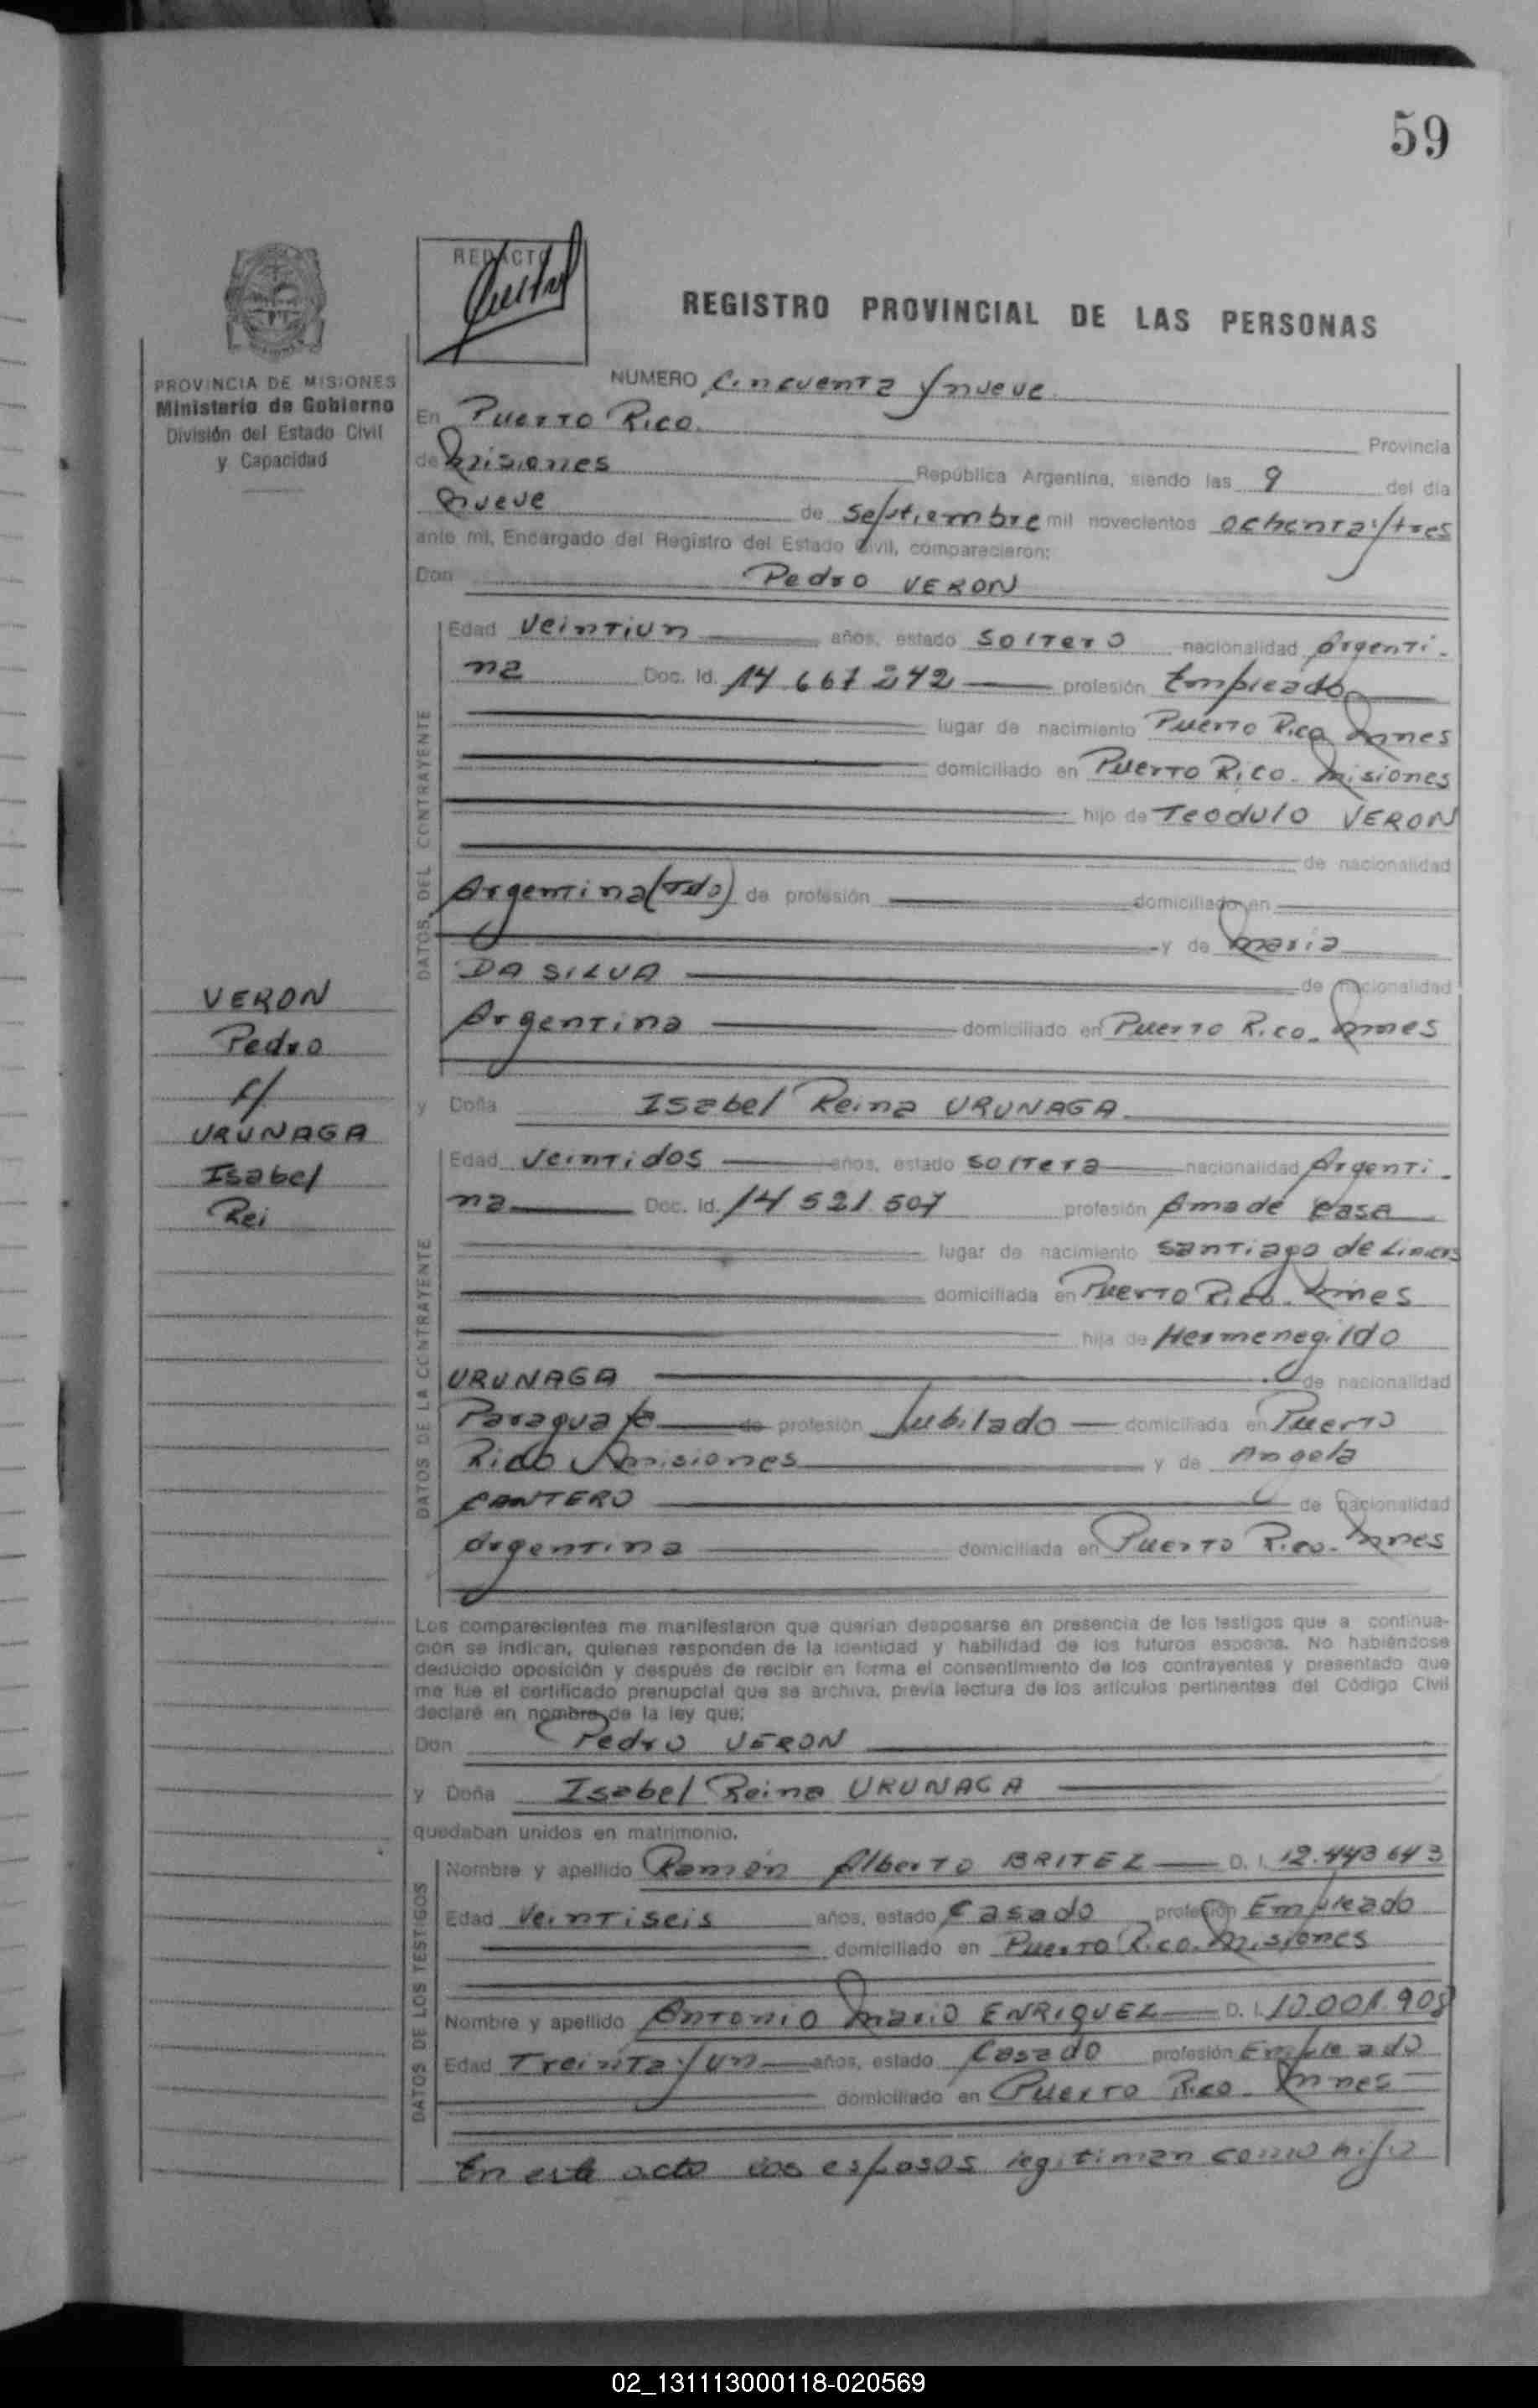 59
REDACTO
REGISTRO PROVINCIAL DE LAS PERSONAS
PROVINCIA DE MISIONES
Ministerio de Gobierno
División del Estado Civil
y Capacidad
NUMERO Cincuenta y nueve
En Puerto Rico. Provincia
de Misiones República Argentina, siendo las 9 del día
Nueve de Septiembre mil novecientos ochenta y tres
ante mi, Encargado del Registro del Estado Civil, comparecieron:
Don Pedro VERON
DATOS DEL CONTRAYENTE
Edad Veintiun años, estado Soltero nacionalidad Argenti-
na Doc. Id. 14.667.242 profesión Empleado
lugar de nacimiento Puerto Rico Mnes
domiciliado en Puerto Rico. Misiones
hijo de Teodulo VERON
de nacionalidad
Argentina (Fdo) de profesión domiciliado en
y de Maria
DA SILVA de nacionalidad
Argentina domiciliado en Puerto Rico. Mnes
VERON
Pedro
c/
URUNAGA
Isabel
Rei
y Doña Isabel Reina URUNAGA
DATOS DE LA CONTRAYENTE
Edad Veintidos años, estado soltera nacionalidad Argenti-
na Doc. Id. 14.521.507 profesión Ama de Casa
lugar de nacimiento Santiago de Liniers
domiciliada en Puerto Rico. Mnes
hija de Hermenegildo
URUNAGA de nacionalidad
Paraguaya de profesión Jubilado domiciliada en Puerto
Rico Misiones y de Angela
CANTERO de nacionalidad
Argentina domiciliada en Puerto Rico. Mnes
Los comparecientes me manifestaron que querían desposarse en presencia de los testigos que a continua-
ción se indican, quienes responden de la identidad y habilidad de los futuros esposos. No habiéndose
deducido oposición y después de recibir en forma el consentimiento de los contrayentes y presentado que
me fue el certificado prenupcial que se archiva, previa lectura de los artículos pertinentes del Código Civil
declaré en nombre de la ley que:
Don Pedro VERON
y Doña Isabel Reina URUNAGA
quedaban unidos en matrimonio.
DATOS DE LOS TESTIGOS
Nombre y apellido Ramón Alberto BRITEZ D. I. 12.443.643
Edad Veintiseis años, estado Casado profesión Empleado
domiciliado en Puerto Rico. Misiones
Nombre y apellido Antonio Mario ENRIQUEZ D. I. 10.001.908
Edad Treinta y un años, estado Casado profesión Empleado
domiciliado en Puerto Rico. Mnes
En este acto los esposos legitiman como hijo
02_131113000118-020569